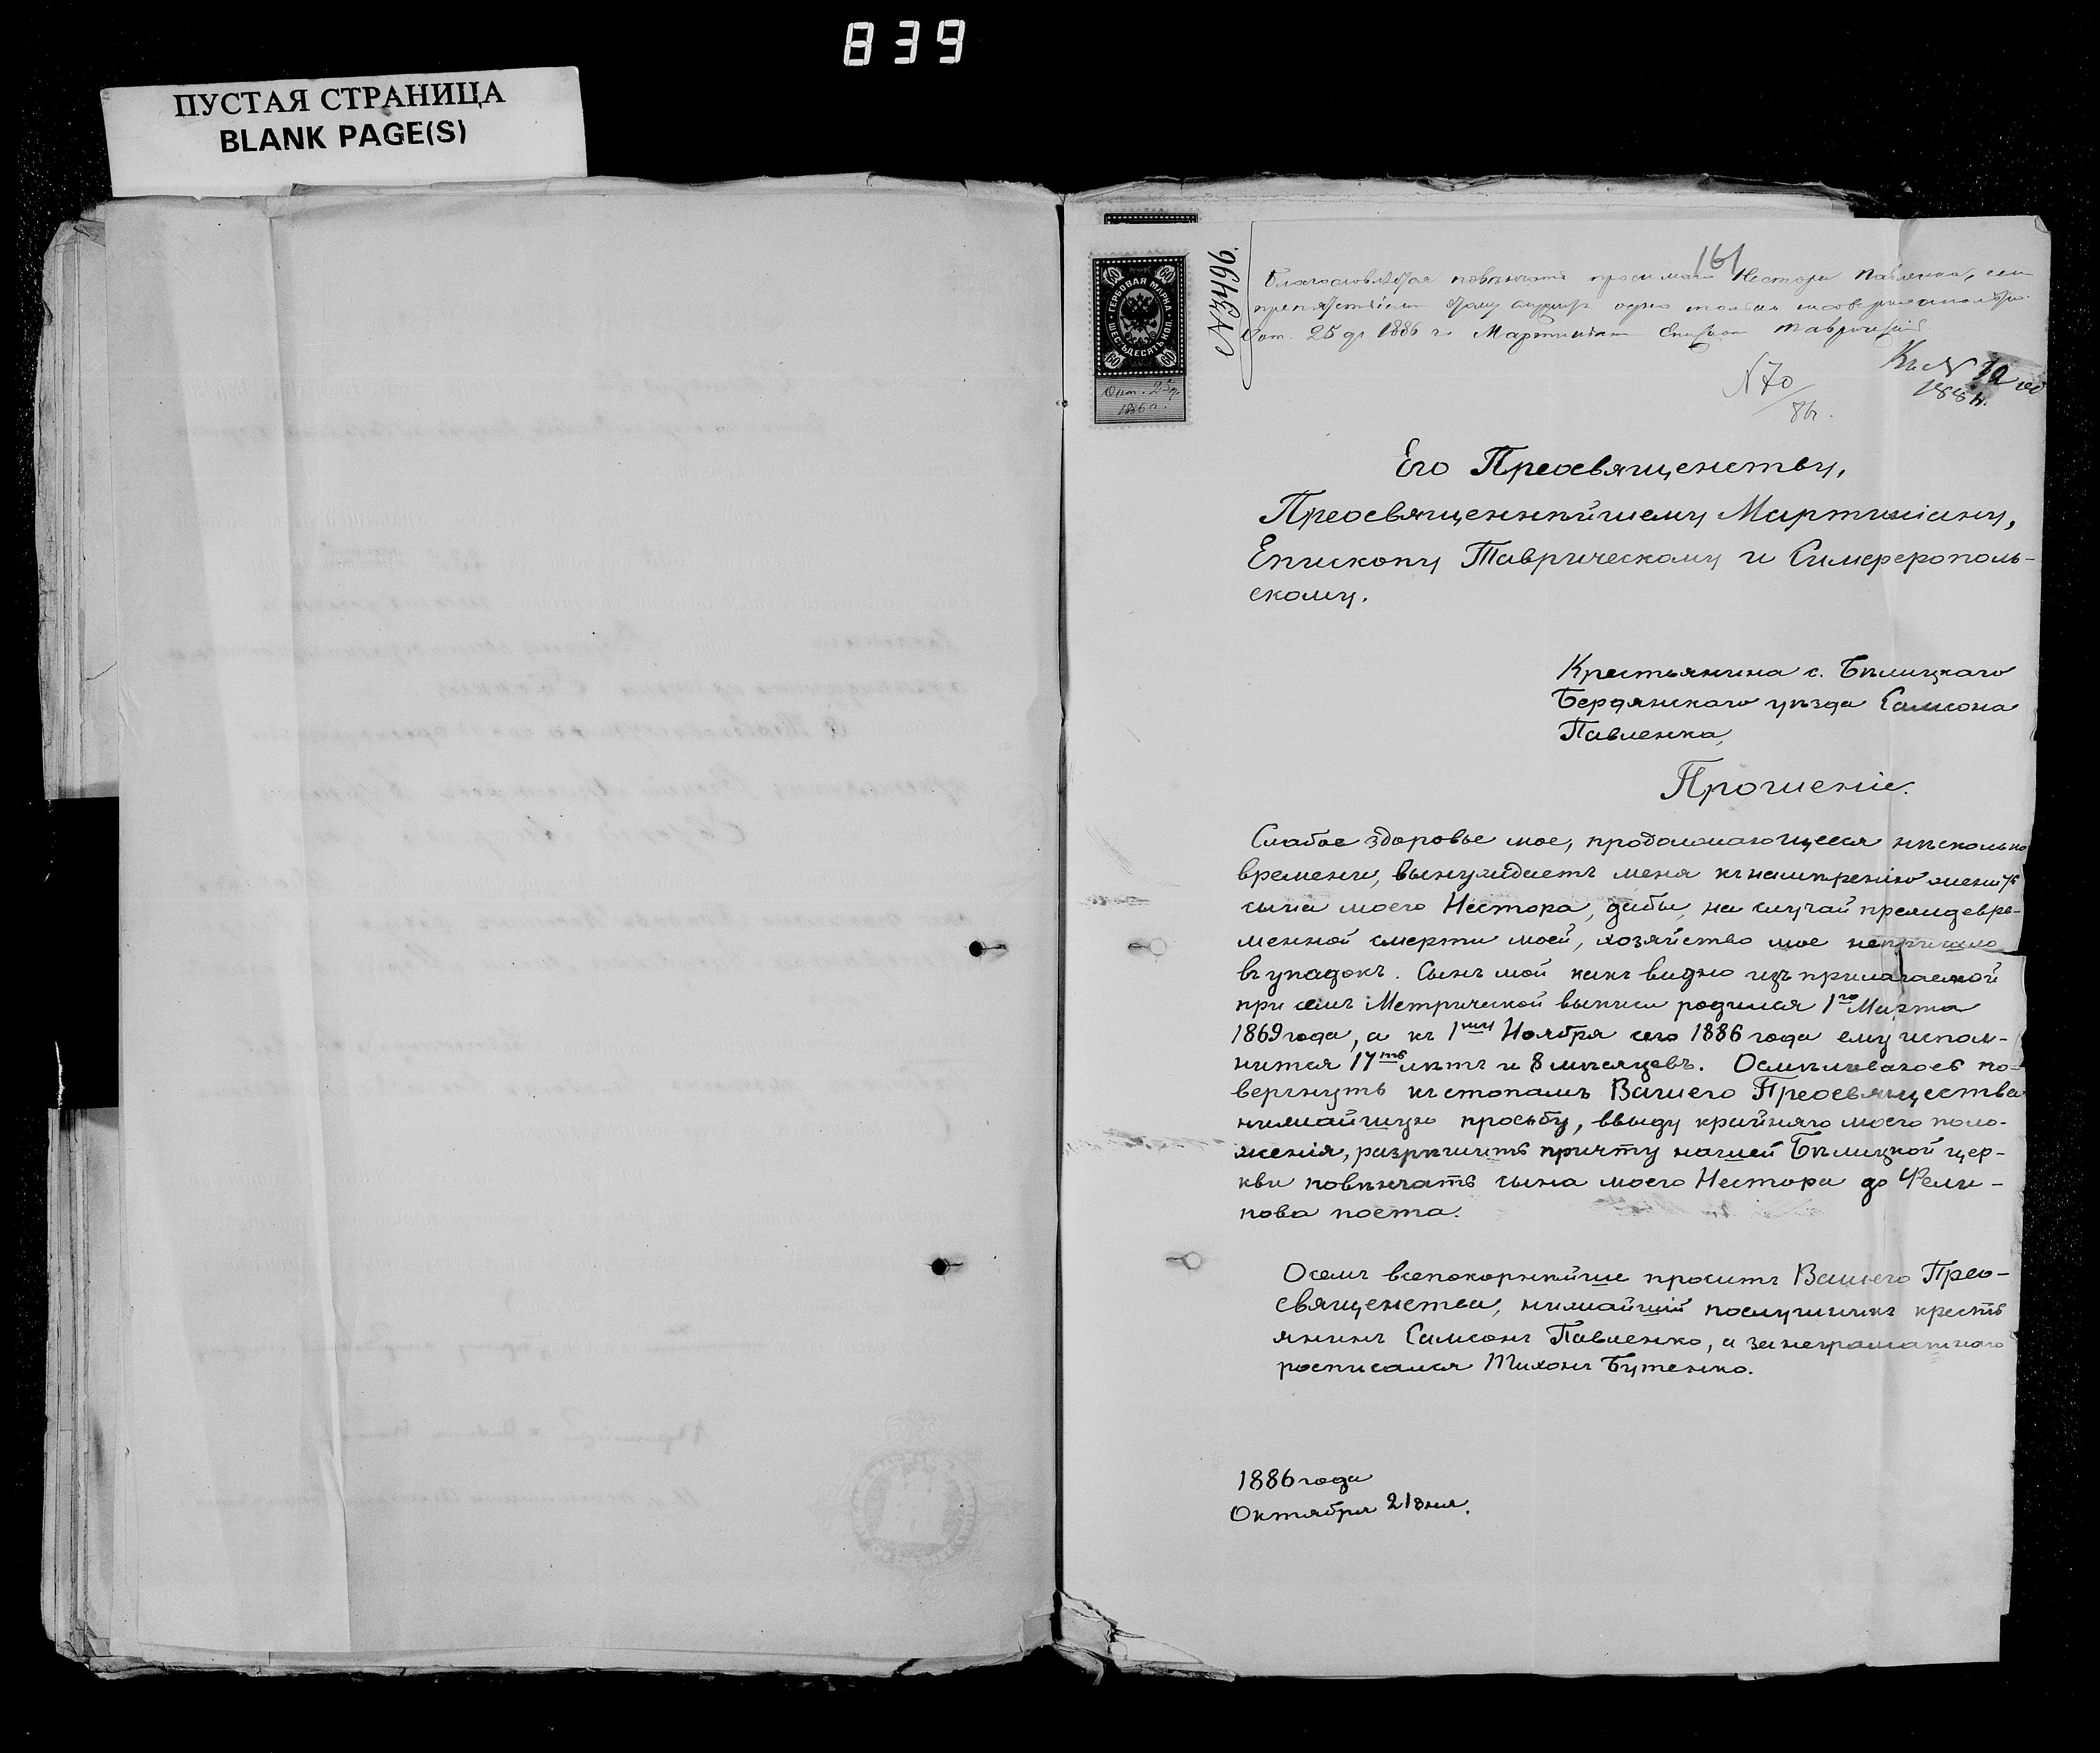 839
ПУСТАЯ СТРАНИЦА
BLANK PAGE(S)
161
№3496.
ГЕРБОВАЯ МАРКА
ШЕСТЬДЕСЯТЪ КОП.
60 60
60 60
Окт. 25 д.
1886 г.
повѣнчать Нестора Павленка,
Окт. 25 д. 1886 г. Мартиніанъ Епископъ Таврическій
N 70/86.
Къ №
Его Преосвященству,
Преосвященнѣйшему Мартиніану,
Епископу Таврическому и Симферополь-
скому.
Крестьянина с. Бѣлицкаго
Бердянскаго уѣзда Самсона
Павленка,
Прошеніе.
Слабое здоровье мое, продолжающееся нѣсколько
времени, вынуждаетъ меня къ намѣренію женить
сына моего Нестора, дабы, на случай преждевре-
менной смерти моей, хозяйство мое непришло
въ упадокъ. Сынъ мой какъ видно изъ прилагаемой
при семъ Метрической выписи родился 1го Марта
1869 года, а къ 1му Ноября сего 1886 года ему испол-
нится 17ть лѣтъ и 8 мѣсяцевъ. Осмѣливаюсь по-
вергнуть къ стопамъ Вашего Преосвящества
нижайшую просьбу, ввиду крайняго моего поло-
женія, разрѣшить причту нашей Бѣлицкой цер-
кви повѣнчать сына моего Нестора до Фили-
пова поста.
Осемъ всепокорнѣйше проситъ Вашего Прео-
священства, нижайшій послушникъ кресть
янинъ Самсонъ Павленко, а за неграмотнаго
росписался Тихонъ Бутенко.
1886 года
Октября 21 дня.